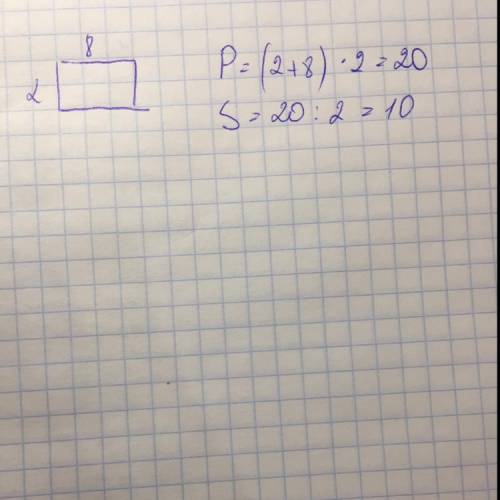 8
2
P = (2+8) · 2 = 20
S = 20 : 2 = 10